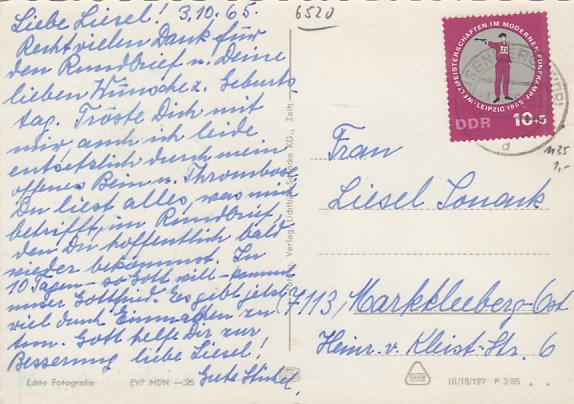 Liebe Liesel! 3.10.65.
Recht vielen Dank für
den Rundbrief u. Deine
lieben Wünsche z. Geburts
tag. Tröste Dich mit
mir, auch ich leide
entsetzlich durch mein
offenes Bein u. Thrombose.
Du liest alles, was mich
betrifft, im Rundbrief,
den Du hoffentlich bald
wieder bekommst. In
10 Tagen - so Gott will - kommt
unser Gottfried. Es gibt jetzt
viel durch Einmachen zu
tun. Gott helfe Dir zur
Besserung liebe Liesel!
Gute
Echte Fotografie EVP MDN —.25
Verlag Lichtbild KG., Zeitz
6520
WELTMEISTERSCHAFTEN IM MODERNEN FÜNFKAMPF
LEIPZIG 1965
DDR 10+5
d
1135
1,-
Frau
Liesel
7113, Markkleeberg-Ost
Heinr. v. Kleist-Str. 6
III/18/197 P 3/65